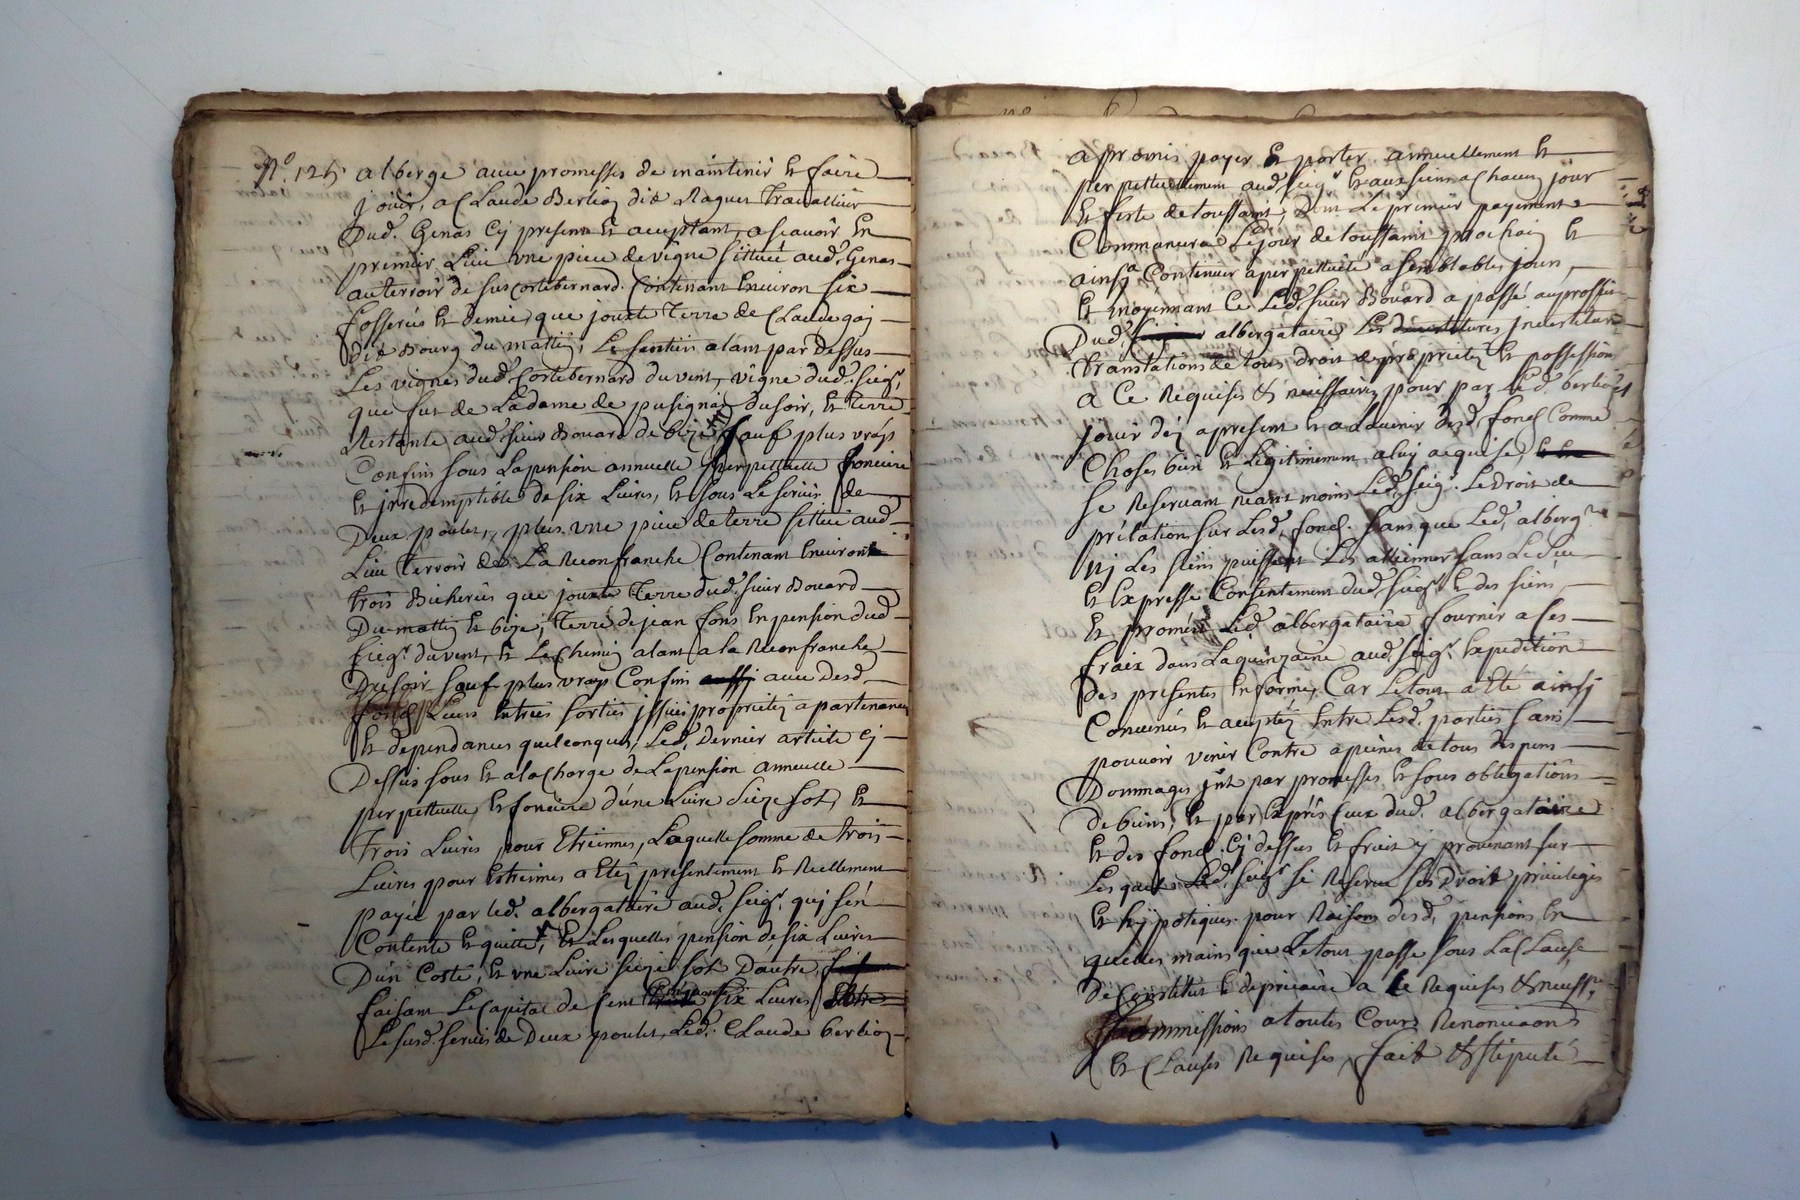 N.º 125. alberge avec promesses de maintenir et faire
jouir, a Claude Berlioz dit Raquet Travailleur
Dud. Genas Cy present et aceptant, a scavoir en
premier Lieu une piece de vigne sittuée aud. Genas
au terroir de sus cortebernard. Contenant Environ six
fosserées et demie, que jouxte Terre de Claude goj
dit Bourg du mattin, Le sentier alant par dessus
Les vignes dud. Cortebernard du vent, vigne dud. sieg.r
que fut de La dame de pusignai du soir, et terre
Restante aud. sieur Bouard de bize sauf plus vrays
Confins sous La pension annuelle perpettuelle fonciere
et jrredemptible de six Livres, et sous Le servis de
Deux poulets, plus une piece de terre sittué aud.
Lieu Terroir de La Reonfranche Contenant Environ
trois Bicherées que jouxte Terre dud. sieur Bouard
Du mattin et bize, Terre de jean fons En pension dud.
sieg.r du vent, et Le Chemin alant a la Reonfranche
Du soir sauf plus vrays Confins avec desd.
fonds Leurs Entrées sorties jssues proprietéz apartenances
et dependances quelconques, Led. Dernier article cj
Dessus sous et a la Charge de La pension annuelle
perpettuelle et fonciere d'une Livre sieze sols, et
Trois Livres pour Etreines, Laquelle somme de trois
Livres pour Estreines a Eté presentement et Reellement
payée par led. albergataire aud. seig.r qui s'en
Contente et quitte, Et Lesquelles pension de six Livres
D'un Costé, et une Livre sieze sols D'autre,
faisant Le Capital de Cent six Livres
Le susd. servis de Deux poulets, Led. Claude berlioz
a promis payer et porter annuellement et
perpettuellement aud. seig.r et aux siens a Chacun jour
et feste de toussaint, Dont Le premier payement
Commancera Le jour de toussaint prochain et
ainsy Continuer a perpettuité a semblables jours,
et moyennant Ce Led. sieur Bouard a passé au proffit
Dud. albergataire Les devestitures jnvestitures
translations de tous droits de proprietéz et possessions
a Ce Requises et necessaires pour par Led. berlioz
jouir dez apresent et a L'avenir desd. fonds Comme
Choses bien et Legitimement a luy acquise,
se Reservant neant moins Led. seig.r Le droit de
prélation sur Lesd. fonds. sans que Led. alberg.re
nj Les siens puissent Les alliener sans Le sceu
et Expresse Consentement dud. sieg.r et des siens
et promet Led. albergataire fournir a ses
fraix dans La quinzaine aud. seig.r Expedition
Des presentes en forme, Car Le tout a Eté ainsj
Convenus et accepté Entre Lesd. parties sans
pouvoir venir Contre a peines de tous despens
Dommages jnt par promesses et sous obligations
de biens, et par Exprés Ceux dud. albergataire
et des fonds Cy dessus et fruits y provenant sur
Lesquels Led. seig.r se Reserve ses Droits privilegés
et hypotiques pour Raisons desd. pensions En
quelles mains que Le tout passe sous La Clause
de Constitut et depriccaire a Ce Requises et necess.res
soummissions a toutes Cours Renonciaons
et Clauses Requises, fait et stipulé